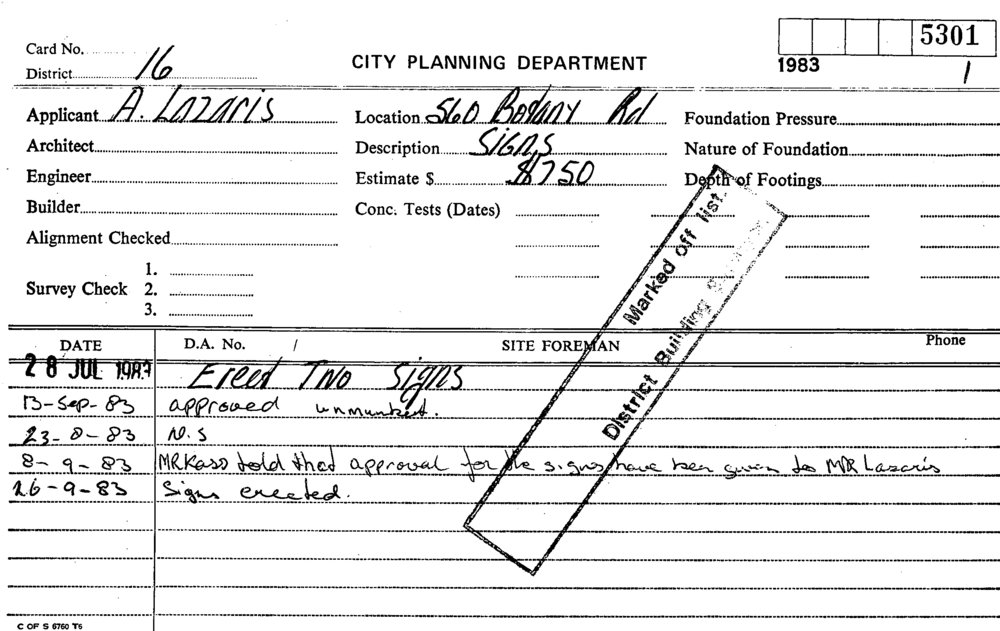 5301
Card No.
CITY PLANNING DEPARTMENT
1983
1
District 16
Applicant A. Lazaris
Location 560 Botany Rd
Foundation Pressure
Architect
Description Signs
Nature of Foundation
Engineer
Estimate $ $750
Depth of Footings
Builder
Conc. Tests (Dates)
Alignment Checked
1.
Survey Check 2.
3.
Marked off list.
District Building
DATE D.A. No. / SITE FOREMAN Phone
28 JUL 1983 Erect Two Signs
13-Sep-83 approved
23-8-83 N.S
8-9-83 MR Kass told that approval for the signs have been given to MR Lazaris
26-9-83 Signs erected.
C OF S 6760 T6